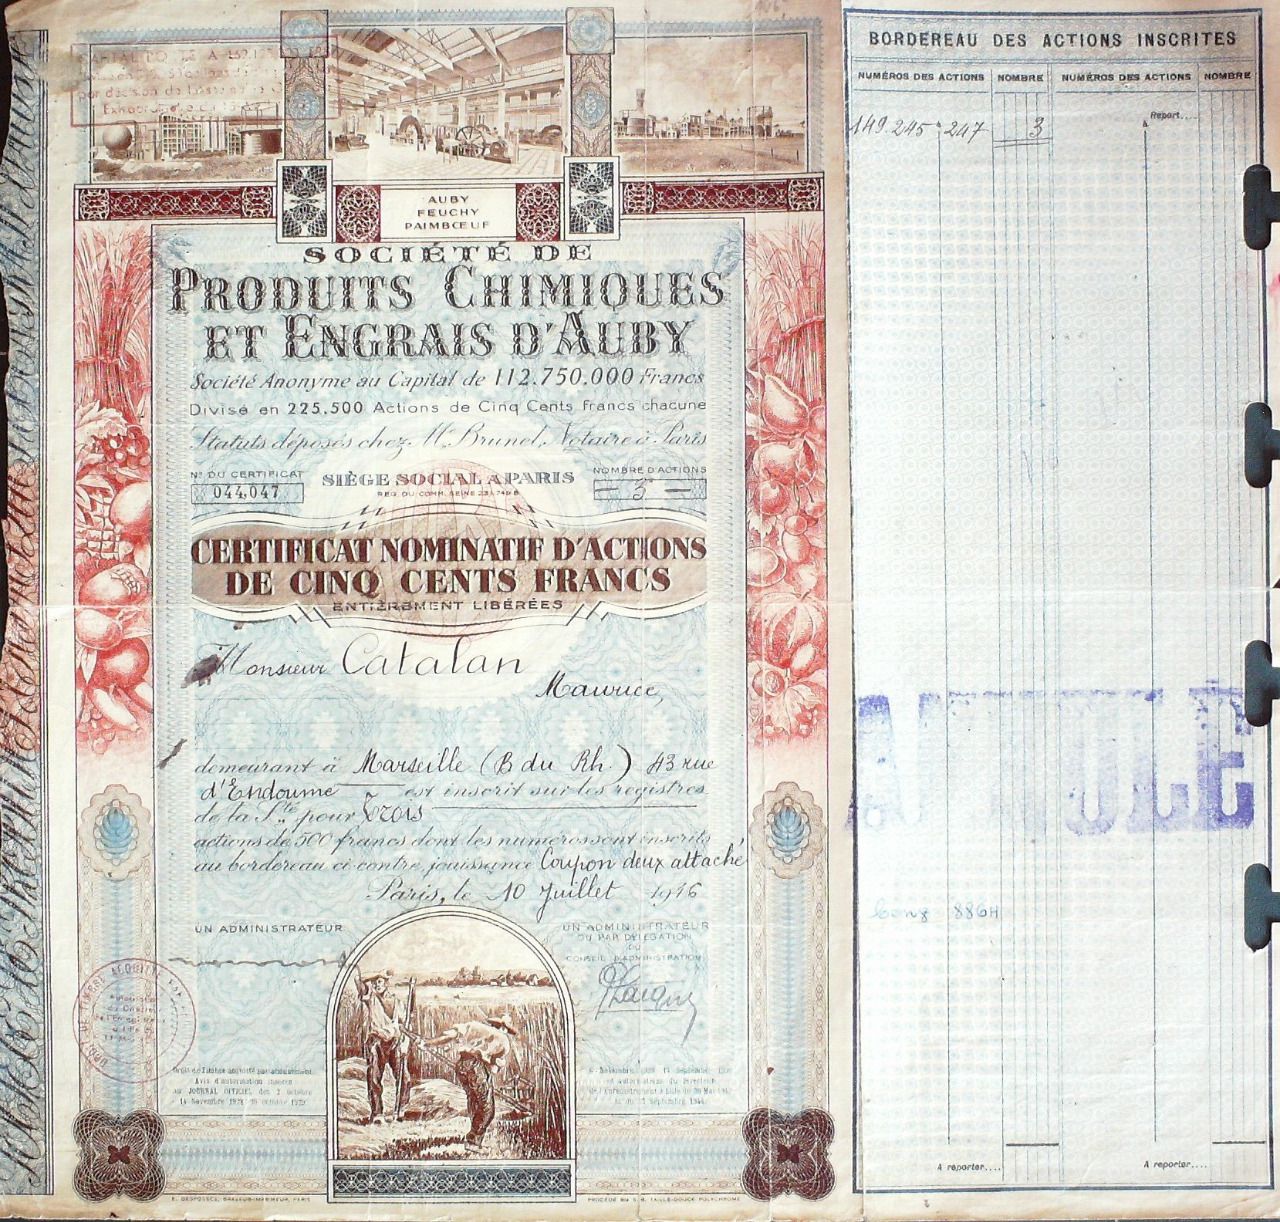 AUBY
FEUCHY
PAIMBŒUF
SOCIÉTÉ DE
PRODUITS CHIMIQUES
ET ENGRAIS D'AUBY
Société Anonyme au Capital de 112.750.000 Francs
Divisé en 225,500 Actions de Cinq Cents francs chacune
Statuts déposés chez Me Brunel, Notaire à Paris
N° DU CERTIFICAT
044,047
SIÈGE SOCIAL A PARIS
REG. DU COMM. SEINE
NOMBRE D'ACTIONS
— 3 —
CERTIFICAT NOMINATIF D'ACTIONS
DE CINQ CENTS FRANCS
ENTIÈREMENT LIBÉRÉES
Monsieur Catalan
Maurice,
demeurant à Marseille (B du Rh.) 43 rue
d'Endoume est inscrit sur les registres
de la Sté pour Trois
actions de 500 francs dont les numéros sont inscrits
au bordereau ci-contre, jouissance Coupon deux attaché
Paris, le 10 Juillet 1946
UN ADMINISTRATEUR
UN ADMINISTRATEUR
OU PAR DÉLÉGATION
DU
CONSEIL D'ADMINISTRATION
BORDEREAU DES ACTIONS INSCRITES
NUMÉROS DES ACTIONS NOMBRE NUMÉROS DES ACTIONS NOMBRE
Report....
149.245 à 247 3
ANNULÉ
Conv 886H
A reporter....
A reporter....